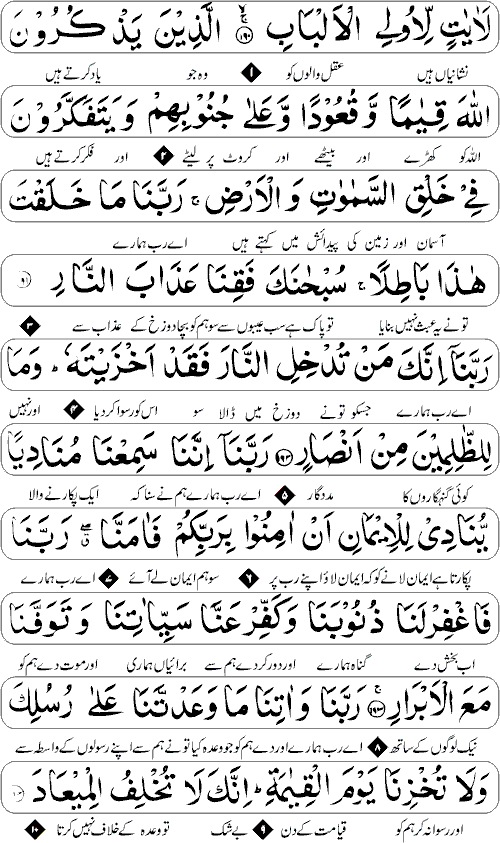 لَاٰيٰتٍ لِّاُولِى الْاَلْبَابِ ۙ﴿۱۹۰﴾ الَّذِيْنَ يَذْكُرُوْنَ
نشانیاں ہیں عقل والوں کو ۱ وہ جو یاد کرتے ہیں
اللّٰهَ قِيٰمًا وَّ قُعُوْدًا وَّعَلٰى جُنُوْبِهِمْ وَيَتَفَكَّرُوْنَ
اللہ کو کھڑے اور بیٹھے اور کروٹ پر لیٹے ۲ اور فکر کرتے ہیں
فِىْ خَلْقِ السَّمٰوٰتِ وَ الْاَرْضِ ۚ رَبَّنَا مَا خَلَقْتَ
آسمان اور زمین کی پیدائش میں کہتے ہیں اے رب ہمارے
هٰذَا بَاطِلًا ۚ سُبْحٰنَكَ فَقِنَا عَذَابَ النَّارِ
تو نے یہ عبث نہیں بنایا تو پاک ہے سب عیبوں سے سو ہم کو بچا دوزخ کے عذاب سے ۳
رَبَّنَاۤ اِنَّكَ مَنْ تُدْخِلِ النَّارَ فَقَدْ اَخْزَيْتَهٗ ؕ وَمَا
اے رب ہمارے جسکو تو نے دوزخ میں ڈالا سو اس کو رسوا کر دیا ۴ اور نہیں
لِلظّٰلِمِيْنَ مِنْ اَنْصَارٍ ﴿۱۹۲﴾ رَبَّنَاۤ اِنَّنَا سَمِعْنَا مُنَادِيًا
کوئی گنہگاروں کا مددگار ۵ اے رب ہمارے ہم نے سنا کہ ایک پکارنے والا
يُّنَادِىْ لِلْاِيْمَانِ اَنْ اٰمِنُوْا بِرَبِّكُمْ فَاٰمَنَّا ۖ رَبَّنَا
پکارتا ہے ایمان لانے کو کہ ایمان لاؤ اپنے رب پر ۶ سو ہم ایمان لے آئے ۷ اے رب ہمارے
فَاغْفِرْ لَنَا ذُنُوْبَنَا وَ كَفِّرْ عَنَّا سَيِّاٰتِنَا وَ تَوَفَّنَا
اب بخش دے گناہ ہمارے اور دور کردے ہم سے برائیاں ہماری اور موت دے ہم کو
مَعَ الْاَبْرَارِ ۚ﴿۱۹۳﴾ رَبَّنَا وَاٰتِنَا مَا وَعَدْتَّنَا عَلٰى رُسُلِكَ
نیک لوگوں کے ساتھ ۸ اے رب ہمارے اور دے ہم کو جو وعدہ کیا تو نے ہم سے اپنے رسولوں کے واسطہ سے
وَلَا تُخْزِنَا يَوْمَ الْقِيٰمَةِ ؕ اِنَّكَ لَا تُخْلِفُ الْمِيْعَادَ
اور رسوا نہ کر ہم کو قیامت کے دن ۹ بے شک تو وعدہ کے خلاف نہیں کرتا ۱۰